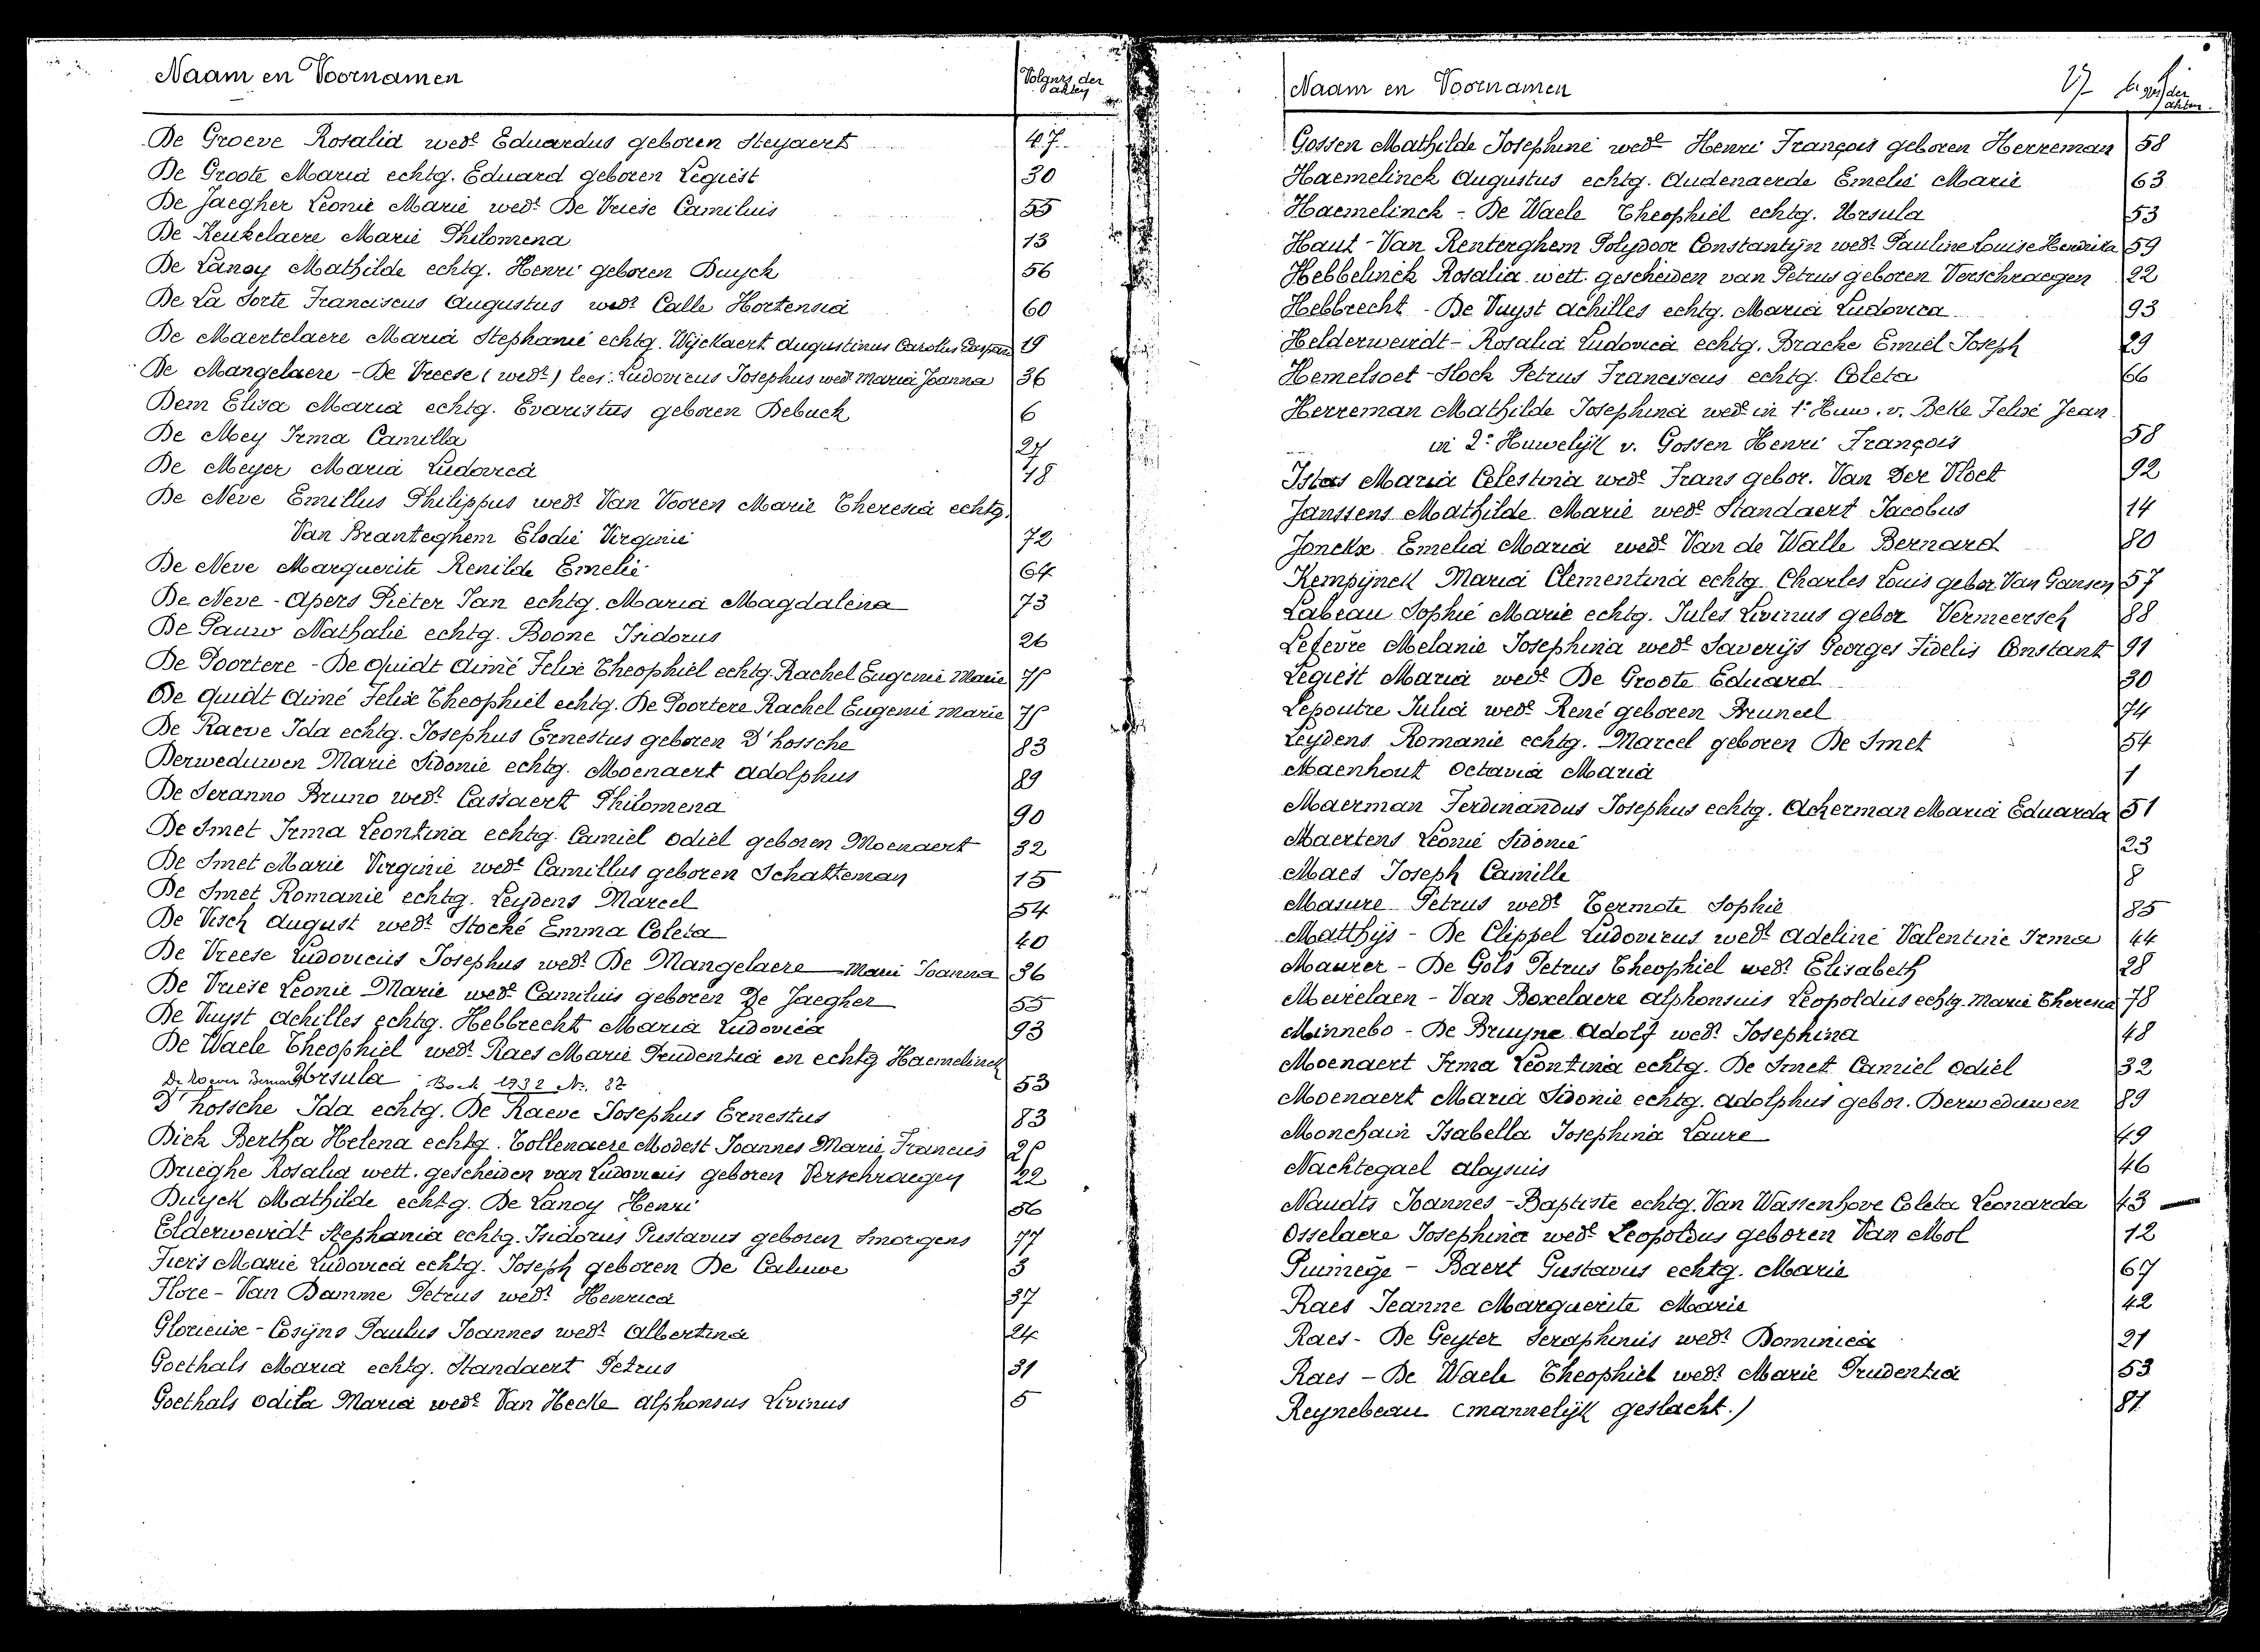 Naam en Voornamen
Volgnrs der akten
De Groeve Rosalia wede Eduardus geboren Steyaert 47
De Groote Maria echtg. Eduard geboren Legiest 30
De Jaegher Leonie Marie wedr De Vriese Camilius 55
De Keukelaere Marie Philomena 13
De Lanoy Mathilde echtg. Henri geboren Buyck 56
De La Sorte Franciscus Augustus wedr Calle Hortensia 60
De Maertelaere Maria Stephanie echtg. Wyckaert Augustinus Carolus 19
De Mangelaere - De Vreese (wedr) lees: Ludovicus Josephus wedr Maria Joanna 36
Dem Elisa Maria echtg. Evaristus geboren Debuck 6
De Mey Irma Camilla 27
De Meyer Maria Ludovica 48
De Neve Emillus Philippus wedr Van Vooren Marie Theresia echtg.
Van Branteghem Elodie Virginie 72
De Neve Marguerite Renilde Emelie 64
De Neve - Apers Pieter Jan echtg. Maria Magdalena 73
De Pauw Nathalie echtg. Boone Isidorus 26
De Poortere - De Quidt Aimé Felix Theophiel echtg. Rachel Eugenie Marie 75
De Quidt Aimé Felix Theophiel echtg. De Poortere Rachel Eugenie Marie 75
De Raeve Ida echtg. Josephus Ernestus geboren D'hossche 83
Derweduwen Marie Sidonie echtg. Moenaert Adolphus 89
De Seranno Bruno wedr Cassaert Philomena 90
De Smet Irma Leontina echtg. Camiel Odiel geboren Moenaert 32
De Smet Marie Virginie wede Camillus geboren Schatteman 15
De Smet Romanie echtg. Leydens Marcel 54
De Visch August wedr Stocké Emma Coleta 40
De Vreese Ludovicus Josephus wedr De Mangelaere Marie Joanna 36
De Vriese Leonie Marie wede Camilius geboren De Jaegher 55
De Vuyst Achilles echtg. Hebbrecht Maria Ludovica 93
De Waele Theophiel wedr Raes Marie Prudentia en echtg Haemelinck
Ursula Boek 1932 Nr. 82 53
D'hossche Ida echtg. De Raeve Josephus Ernestus 83
Dick Bertha Helena echtg. Tollenaere Modest Joannes Marie Francies 25
Drieghe Rosalia wett. gescheiden van Ludovicus geboren Verschraegen 22
Duyck Mathilde echtg. De Lanoy Henri 56
Elderweirdt Stephania echtg. Isidorus Gustavus geboren Smorgens 77
Fiers Marie Ludovica echtg. Joseph geboren De Caluwe 3
Flore - Van Damme Petrus wedr Henrica 37
Glorieuse - Cosyns Paulus Joannes wedr Albertina 24
Goethals Maria echtg. Standaert Petrus 31
Goethals Odila Maria wede Van Hecke Alphonsus Livinus 5
Naam en Voornamen
der akten.
Gossen Mathilde Josephine wede Henri François geboren Herreman 58
Haemelinck Augustus echtg. Audenaerde Emelie Marie 63
Haemelinck - De Waele Theophiel echtg. Ursula 53
Haut - Van Renterghem Polydoor Constantijn wedr Pauline Louise Hendrika 59
Hebbelinck Rosalia wett. gescheiden van Petrus geboren Verschraegen 22
Hebbrecht - De Vuyst Achilles echtg. Maria Ludovica 93
Helderweirdt - Rosalia Ludovica echtg. Brache Emiel Joseph 29
Hemelsoet - Stock Petrus Franciscus echtg. Coleta 66
Herreman Mathilde Josephina wede in 1e Huw. v. Belle Felixé Jean
in 2e Huwelijk v. Gossen Henri François 58
Istas Maria Celestina wede Frans gebor. Van Der Vloet 92
Janssens Mathilde Marie wede Standaert Jacobus 14
Jonckx Emelia Maria wede Van de Walle Bernard 80
Kempijnck Maria Clementina echtg. Charles Louis gebor Van Gansen 57
Labeau Sophie Marie echtg. Jules Livinus gebor Vermeersch 88
Lefevre Melanie Josephina wede Saverijs Georges Fidelis Constant 91
Legiest Maria wede De Groote Eduard 30
Lepoutre Julia wede René geboren Bruneel 74
Leydens Romanie echtg. Marcel geboren De Smet 54
Maenhout Octavia Maria 1
Maerman Ferdinandus Josephus echtg. Ackerman Maria Eduarda 51
Maertens Leonie Sidonie 23
Maes Joseph Camille 8
Masure Petrus wedr Termote Sophie 85
Matthijs - De Clippel Ludovicus wedr Adeline Valentine Irma 44
Maurer - De Gols Petrus Theophiel wedr Elisabeth 28
Meirelaen - Van Boxelaere Alphonsuis Leopoldus echtg. Marie Theresia 78
Minnebo - De Bruyne Adolf wedr Josephina 48
Moenaert Irma Leontina echtg. De Smet Camiel Odiel 32
Moenaert Maria Sidonie echtg. Adolphus gebor. Derweduwen 89
Monchain Isabella Josephina Laure 49
Nachtegael Aloysuis 46
Naudts Joannes - Baptiste echtg. Van Wassenhove Coleta Leonarda 43
Osselaere Josephina wede Leopoldus geboren Van Mol 12
Puimege - Baert Gustavus echtg. Marie 67
Raes Jeanne Marguerite Marie 42
Raes - De Geyter Seraphinus wedr Dominica 21
Raes - De Waele Theophiel wedr Marie Prudentia 53
Reynebeau (mannelijk geslacht.) 81